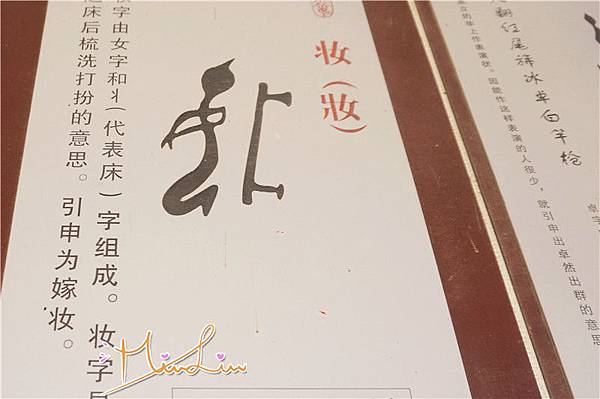 卓字
翻红尾旆冰卓白竿枪
立的竿上作表演状。因能作这样表演的人很少，就引申出卓然出群的意思
妆(妝)
字由女字和丬(代表床)字组成。妆字
床后梳洗打扮的意思。引申为嫁妆。
MinLin